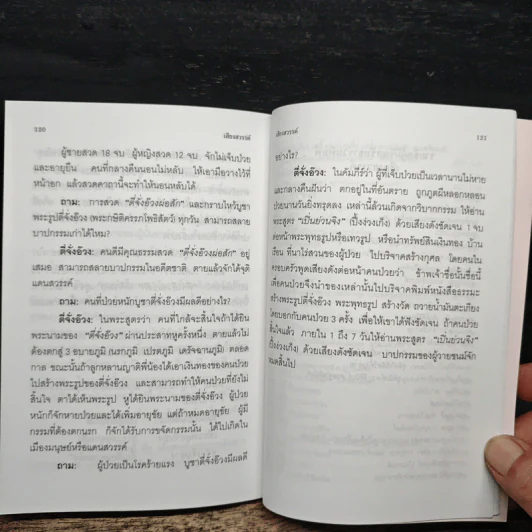 120 เสียงสวรรค์
ผู้ชายสวด 18 จบ ผู้หญิงสวด 12 จบ จักไม่เจ็บป่วย
และอายุยืน คนที่กลางคืนนอนไม่หลับ ให้เอามือวางไว้ที่
หน้าอก แล้วสวดคาถานี้จะทำให้นอนหลับได้
ถาม: การสวด "ตี่จั่งอ๊วงผ่อสัก" และกราบไหว้บูชา
พระรูปตี่จั่งอ๊วง (พระกษิติครรภโพธิสัตว์) ทุกวัน สามารถสลาย
บาปกรรมเก่าได้ไหม?
ตี่จั่งอ๊วง: คนดีมีคุณธรรมสวด "ตี่จั่งอ๊วงผ่อสัก" อยู่
เสมอ สามารถสลายบาปกรรมในอดีตชาติ ตายแล้วก็ได้จุติ
แดนสวรรค์
ถาม: คนที่ป่วยหนักบูชาตี่จั่งอ๊วงมีผลดีอย่างไร?
ตี่จั่งอ๊วง: ในพระสูตรว่า คนที่ใกล้จะสิ้นใจถ้าได้ยิน
พระนามของ "ตี่จั่งอ๊วง" ผ่านประสาทหูครั้งหนึ่ง ตายแล้วไม่
ต้องตกสู่ 3 อบายภูมิ (นรกภูมิ เปรตภูมิ เดรัจฉานภูมิ) ตลอด
กาล ขณะนั้นถ้าลูกหลานญาติพี่น้องได้เอาเงินทองของคนป่วย
ไปสร้างพระรูปของตี่จั่งอ๊วง และสามารถทำให้คนป่วยที่ยังไม่
สิ้นใจ ตาได้เห็นพระรูป หูได้ยินพระนามของตี่จั่งอ๊วง ผู้ป่วย
หนักก็จักหายป่วยและได้เพิ่มอายุขัย แต่ถ้าหมดอายุขัย ผู้มี
กรรมที่ต้องตกนรก ก็จักได้รับการขจัดกรรมนั้น ได้ไปเกิดใน
เมืองมนุษย์หรือแดนสวรรค์
ถาม: ผู้ป่วยเป็นโรคร้ายแรง บูชาตี่จั่งอ๊วงมีผลดี
เสียงสวรรค์ 121
อย่างไร?
ตี่จั่งอ๊วง: ในคัมภีร์ว่า ผู้ที่เจ็บป่วยเป็นเวลานานไม่หาย
และกลางคืนฝันว่า ตกอยู่ในที่อันตราย ถูกภูตผีหลอกหลอน
ป่วยนานวันยิ่งทรุดลง เหล่านี้ล้วนเกิดจากวิบากกรรม ให้อ่าน
พระสูตร "เป็นย่วนจึง" (ปึ้งง่วงเก็ง) ด้วยเสียงดังชัดเจน 1 จบ
ต่อหน้าพระพุทธรูปหรือเทวรูป หรือนำทรัพย์สินเงินทอง บ้าน
เรือน ที่นาไร่สวนของผู้ป่วย ไปบริจาคสร้างกุศล โดยคนใน
ครอบครัวพูดเสียงดังต่อหน้าคนป่วยว่า ข้าพเจ้าชื่อนั้นชื่อนี้
เพื่อคนป่วยจึงนำของเหล่านั้นไปบริจาคพิมพ์หนังสือธรรมะ
สร้างพระรูปตี่จั่งอ๊วง พระพุทธรูป สร้างวัด ถวายน้ำมันตะเกียง
โดยบอกกับคนป่วย 3 ครั้ง เพื่อให้เขาได้ฟังชัดเจน ถ้าคนป่วย
สิ้นใจแล้ว ภายใน 1 ถึง 7 วันให้อ่านพระสูตร "เป็นย่วนจึง"
(ปึ้งง่วงเก็ง) ด้วยเสียงดังชัดเจน บาปกรรมของผู้วายชนม์จักก็
หมดสิ้นไป